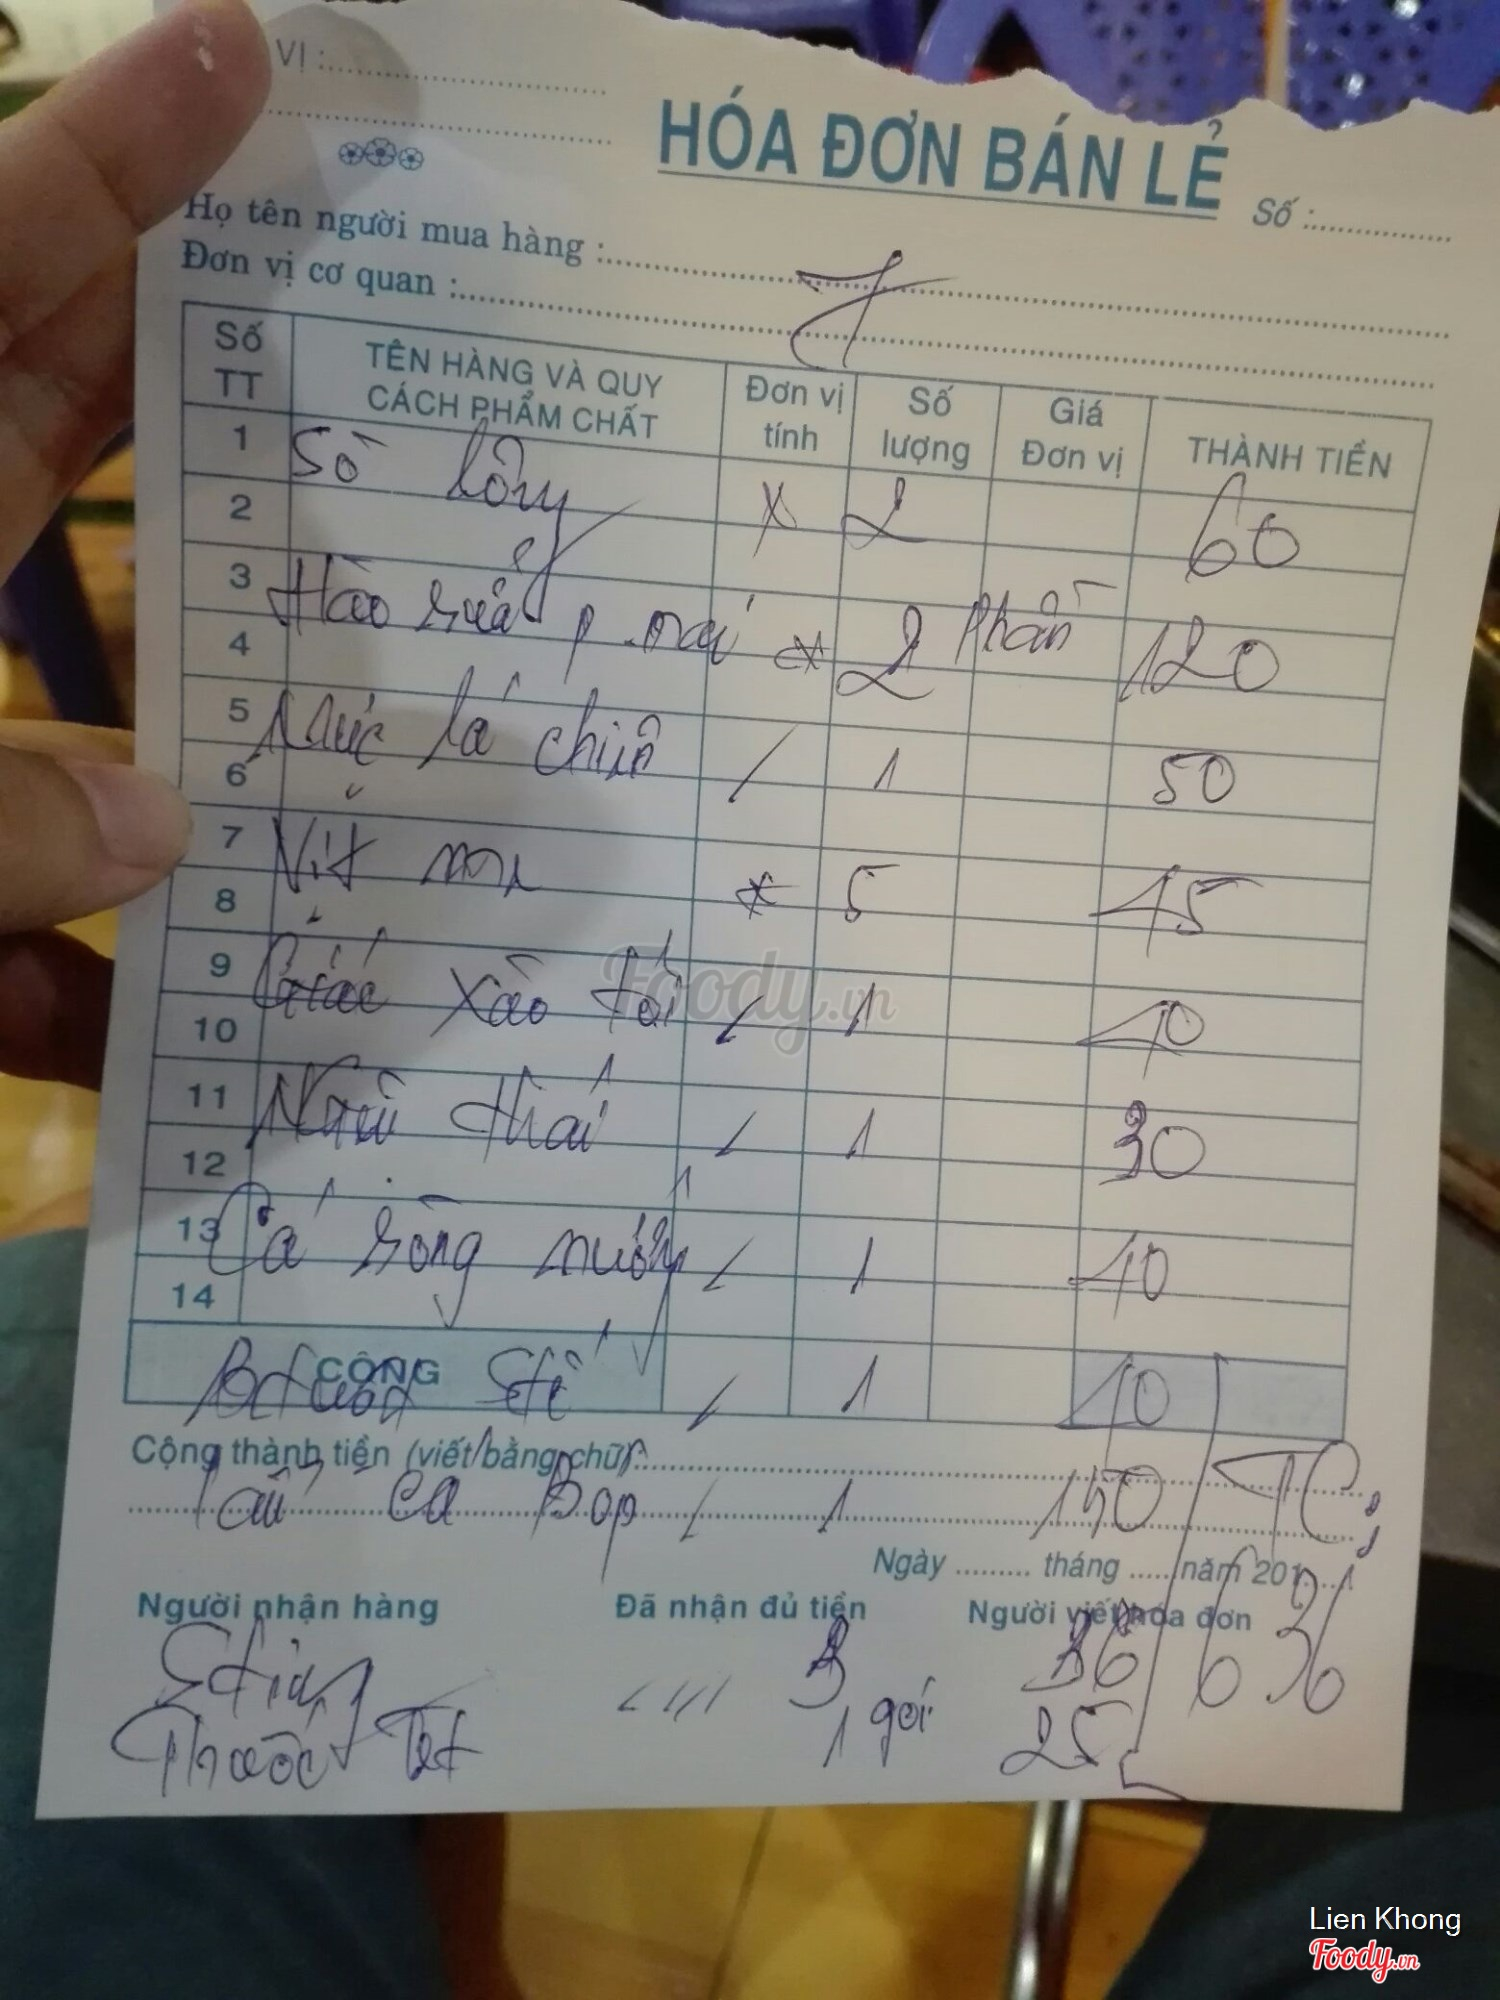 VỊ :
HÓA ĐƠN BÁN LẺ
Số :
Họ tên người mua hàng :
Đơn vị cơ quan :
7
Số TT TÊN HÀNG VÀ QUY CÁCH PHẨM CHẤT Đơn vị tính Số lượng Giá Đơn vị THÀNH TIỀN
1
Sò lông x 2 60
2
3
Hào nướng p mai x 2 phần 120
4
5
Mực lá chiên / 1 50
6
7
Vịt x 5 45
8
9
xào tỏi / 1 40
10
11
thái / 1 30
12
13
Cá nướng / 1 40
14
CỘNG
/ 1 40
Cộng thành tiền (viết bằng chữ):
Lẩu cá Bớp / 1 150
Ngày tháng năm 201
Người nhận hàng Đã nhận đủ tiền Người viết hóa đơn
636
3 36
Thuốc 1 gói 25
Foody.vn
Lien Khong
Foody.vn